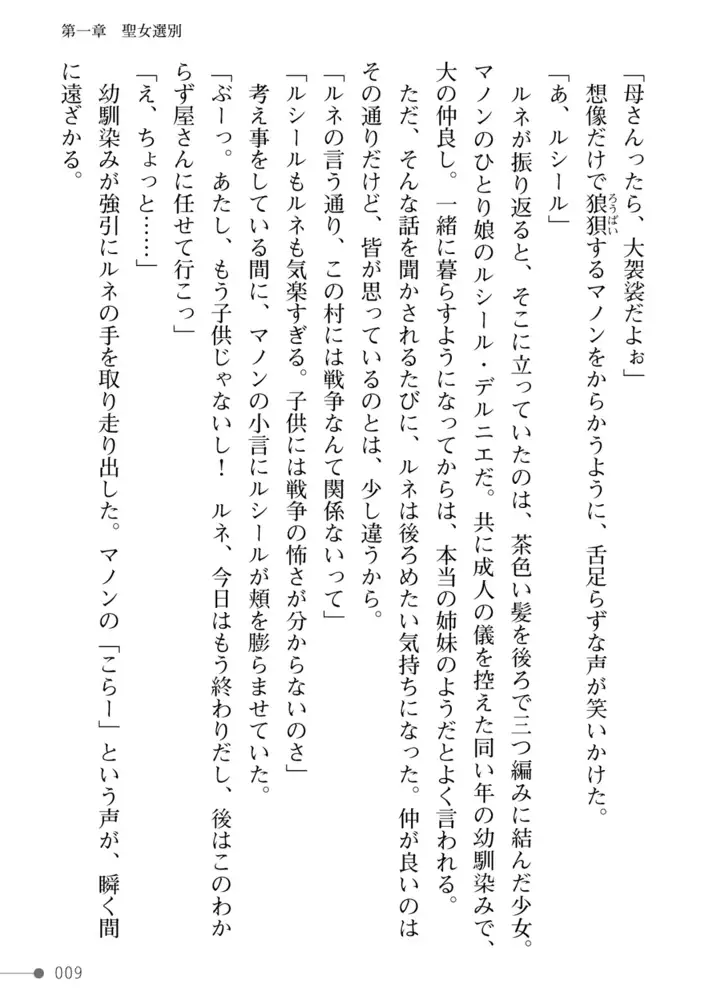 第一章　聖女選別
「母さんったら、大袈裟だよぉ」
想像だけで狼狽するマノンをからかうように、舌足らずな声が笑いかけた。
ろうばい
「あ、ルシール」
ルネが振り返ると、そこに立っていたのは、茶色い髪を後ろで三つ編みに結んだ少女。
マノンのひとり娘のルシール・デルニエだ。共に成人の儀を控えた同い年の幼馴染みで、
大の仲良し。一緒に暮らすようになってからは、本当の姉妹のようだとよく言われる。
ただ、そんな話を聞かされるたびに、ルネは後ろめたい気持ちになった。仲が良いのは
その通りだけど、皆が思っているのとは、少し違うから。
「ルネの言う通り、この村には戦争なんて関係ないって」
「ルシールもルネも気楽すぎる。子供には戦争の怖さが分からないのさ」
考え事をしている間に、マノンの小言にルシールが頬を膨らませていた。
「ぶーっ。あたし、もう子供じゃないし！　ルネ、今日はもう終わりだし、後はこのわか
らず屋さんに任せて行こっ」
「え、ちょっと……」
幼馴染みが強引にルネの手を取り走り出した。マノンの「こらー」という声が、瞬く間
に遠ざかる。
009